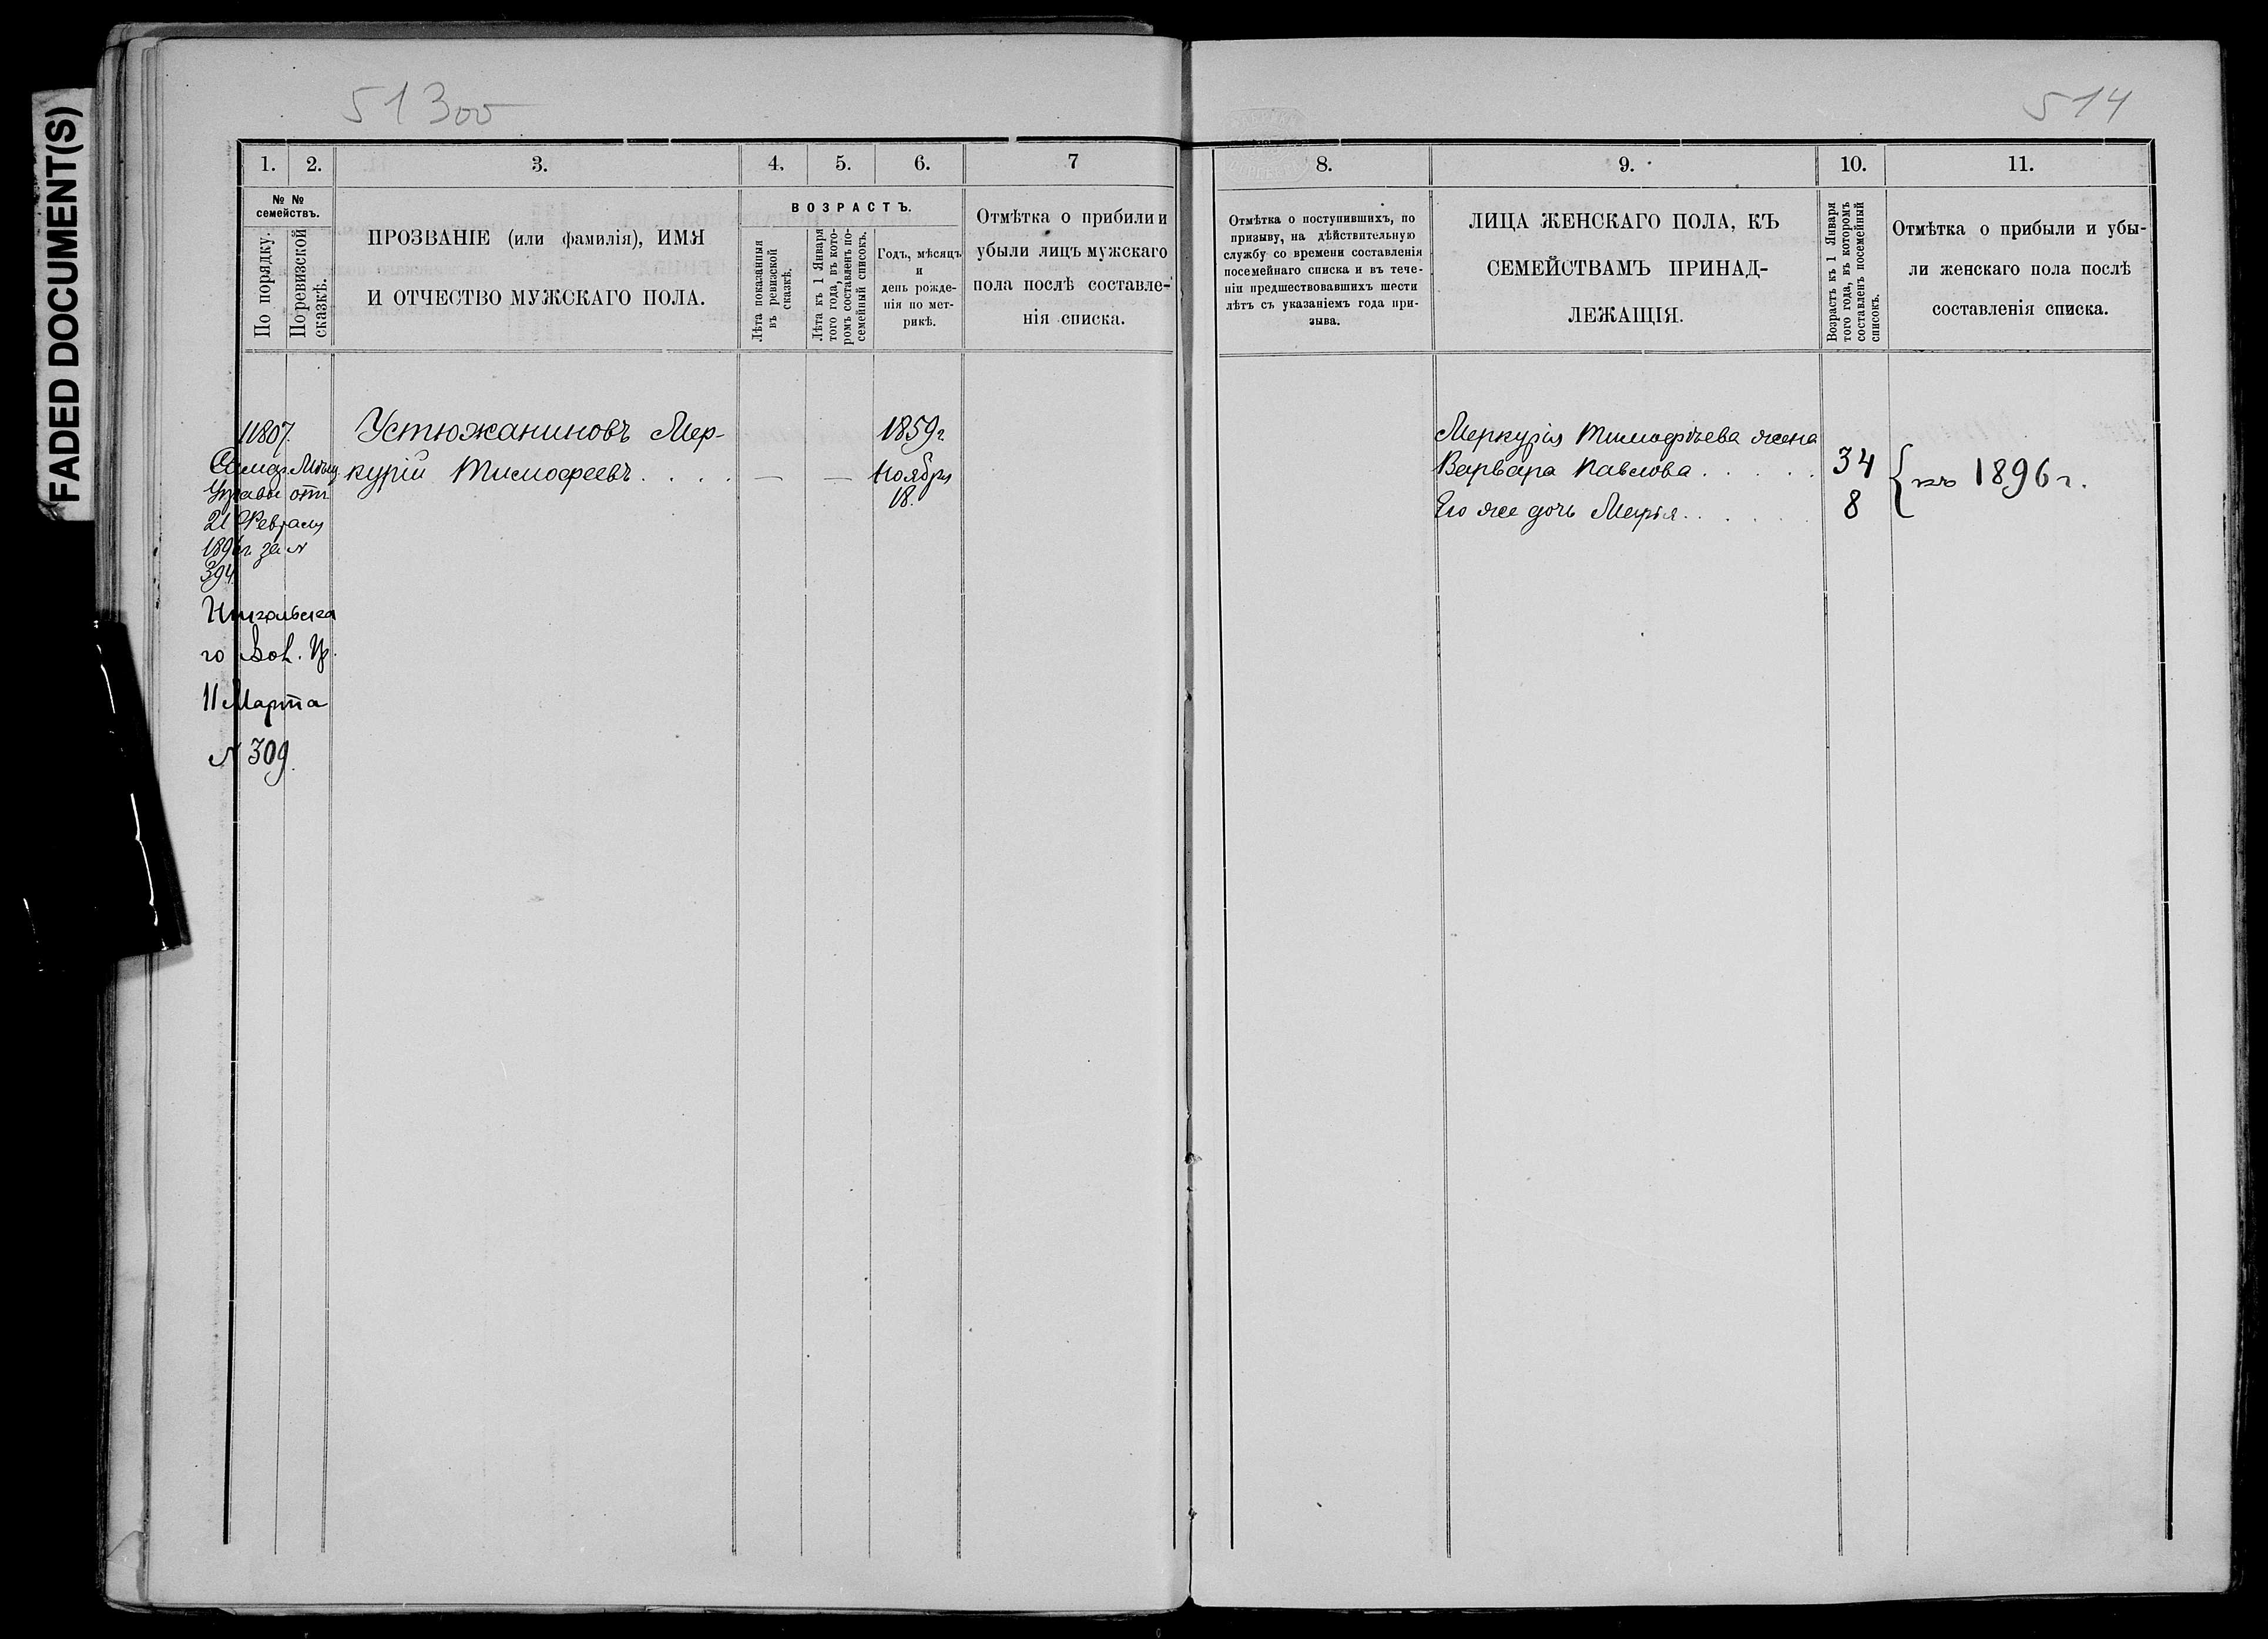 FADED DOCUMENT(S)
513об
514
1.
2.
3.
4.
5.
6.
7
№ №
семействъ.
По порядку.
По ревизской
сказкѣ.
ПРОЗВАНІЕ (или фамилія), ИМЯ
И ОТЧЕСТВО МУЖСКАГО ПОЛА.
ВОЗРАСТЪ.
Лѣта показанія
въ ревизской
сказкѣ.
Лѣта къ 1 Января
того года, въ кото-
ромъ составленъ по-
семейный списокъ.
Годъ, мѣсяцъ
и
день рожде-
нія по мет-
рикѣ.
Отмѣтка о прибыли и
убыли лицъ мужскаго
пола послѣ составле-
нія списка.
11807.
Самар. Мѣщ.
Управы отъ
21 Февраля
1896 г. за №
394.
го Вол. Пр.
11 Марта
№ 309.
Устюжаниновъ Мер-
курій Тимофеевъ . . . .
— —
1859 г.
Ноября
18.
8.
9.
10.
11.
Отмѣтка о поступившихъ, по
призыву, на дѣйствительную
службу со времени составленія
посемейнаго списка и въ тече-
ніи предшествовавшихъ шести
лѣтъ съ указаніемъ года при-
зыва.
ЛИЦА ЖЕНСКАГО ПОЛА, КЪ
СЕМЕЙСТВАМЪ ПРИНАД-
ЛЕЖАЩІЯ.
Возрастъ къ 1 Января
того года, въ которомъ
составленъ посемейный
списокъ.
Отмѣтка о прибыли и убы-
ли женскаго пола послѣ
составленія списка.
Меркурія Тимофѣева жена
Варвара Павлова . . . . . 34
Его же дочь Марія . . . . . 8
къ 1896 г.